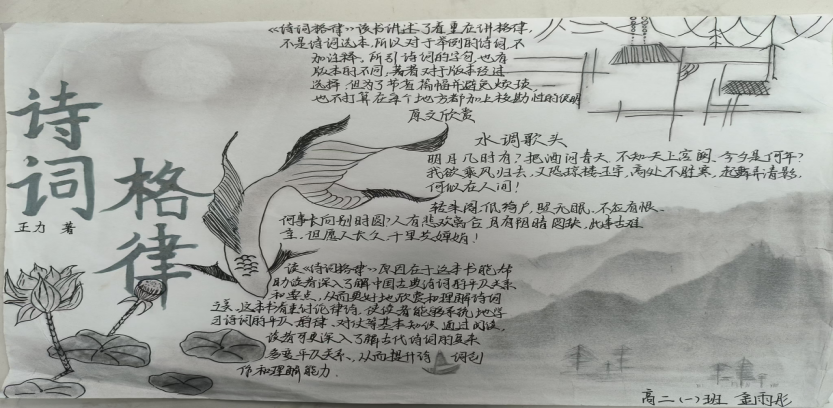 诗词
格律
王力 著
《诗词格律》该书讲述了着重在讲格律,
不是诗词选本,所以对于举例的诗词不
加注释。所引诗词的字句,也有
版本的不同,著者对于版本经过
选择,但为了节省篇幅并避免烦琐,
也不打算在每个地方都加上校勘性的说明
原文欣赏
水调歌头
明月几时有?把酒问青天.不知天上宫阙.今夕是何年?
我欲乘风归去,又恐琼楼玉宇,高处不胜寒,起舞弄清影,
何似在人间!
转朱阁,低绮户,照无眠.不应有恨.
何事长向别时圆?人有悲欢离合,月有阴晴圆缺,此事古难
全.但愿人长久,千里共婵娟!
读《诗词格律》原因在于这本书能帮
助读者深入了解中国古典诗词的平仄关系
和要点,从而更好地欣赏和理解诗词
这本书着重讨论律诗,使读者能够系统地学
习诗词的平仄、韵律、对仗等基本知识,通过阅读,
读者可更深入了解古代诗词的
平仄关系,从而提升诗词创
作和理解能力.
高二(一)班 金雨彤